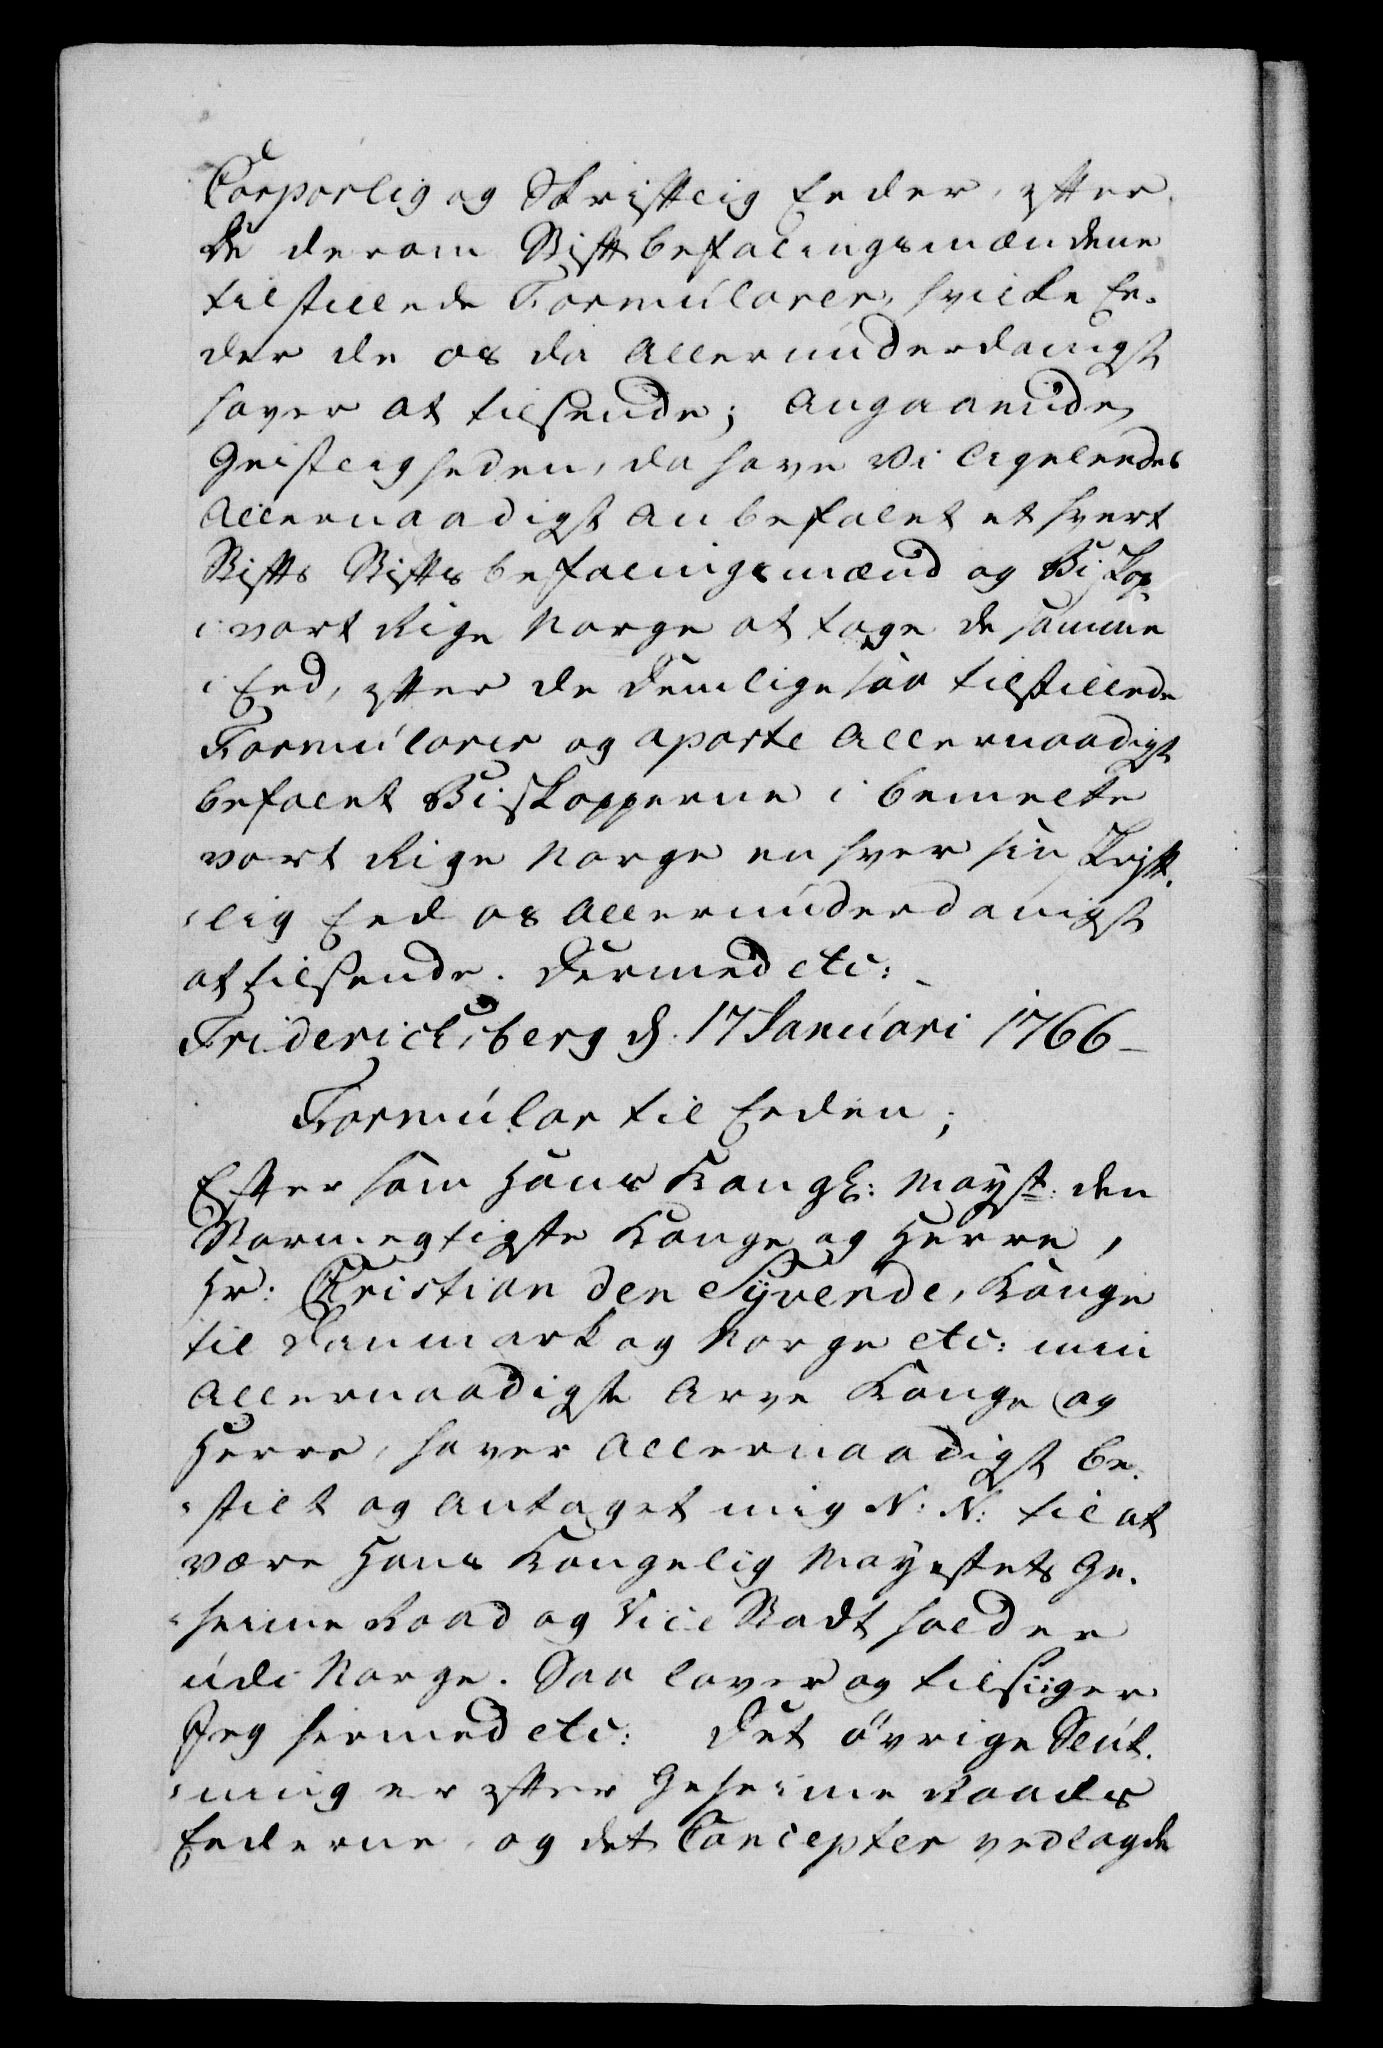 Corporlig og Skriftlig Eeder, efter
de derom Stiftbefalingsmændene
tilstillede Formularer, hvilke Ee-
der de os da Allerunderdanigst
haver at tilsende; Angaaende
Geistligheden, da have Vi ligeledes
Allernaadigst anbefalet et hvert
Stifts Stiftsbefalingsmænd og Biskop
i vort Rige Norge at tage de samme
i Eed, efter de Dennem lige saa tilstillede
Formularer og aparte Allernaadigst
befalet Biskopperne i bemelte
vort Rige Norge en hver sin Skrift-
lig Eed os Allerunderdanigst
at tilsende. Dermed etc:
Friderichsberg d. 17 Januari 1766
Formular til Eeden;
Efter som Hans Kongl: Mayst: den
Stormegtigste Konge og Herre,
Hr: Christian den Syvende, Konge
til Danmark og Norge etc: min
Allernaadigste Arve Konge og
Herre, haver Allernaadigst be-
stilt og Antaget mig N: N: til at
være Hans Kongelig Mayestets Ge-
heime Raad og Vice Stadtholder
udi Norge. Saa lover og tilsiger
Jeg hermed etc: Det øvrige Slut-
ning er efter Geheime Raads
Eederne og det Concepter vedlagde